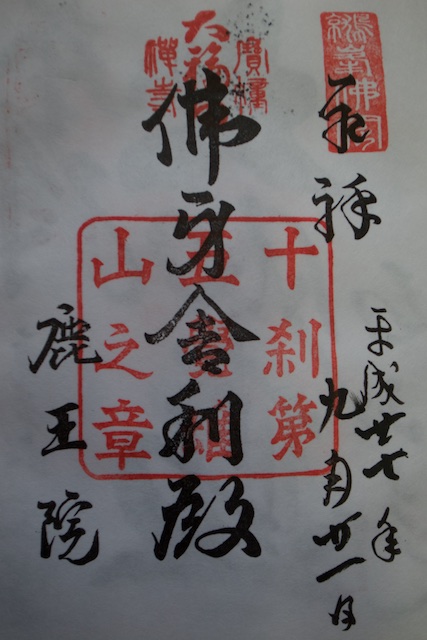 奉拝
平成廿七年
九月廿一日
寶幢
大福
禅寺
佛牙舎利殿
十刹第
五覺雄
山之章
鹿王院